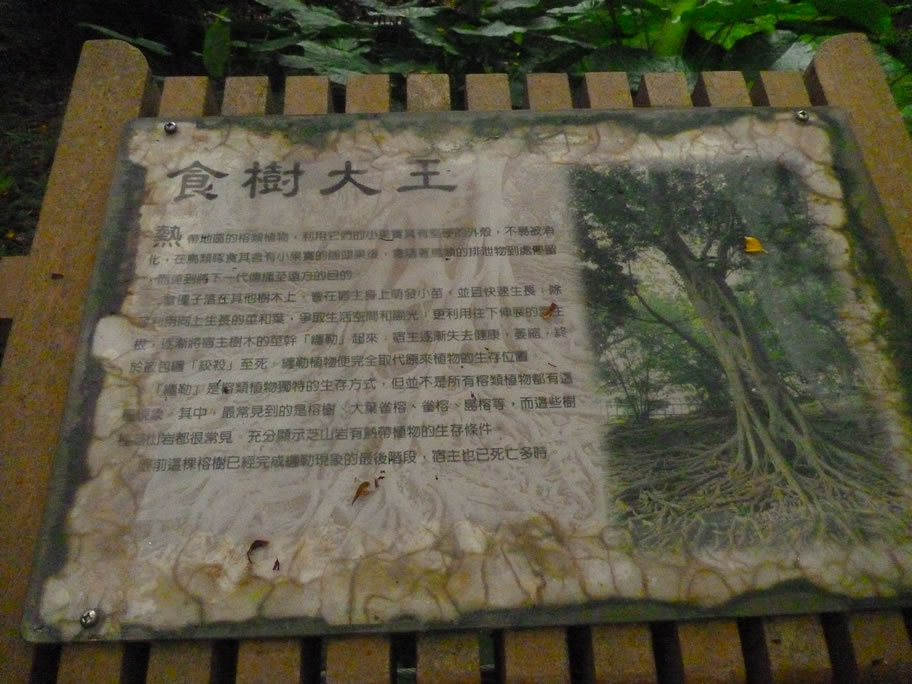 食樹大王
熱帶地區的榕類植物，利用它們的小果實具有堅硬的外殼，不易被消
化，在鳥類啄食其含有小果實的隱頭果後，會隨著鳥類的排泄物到處停留
，而達到將下一代傳播至遠方的目的。
當種子落在其他樹木上，會在宿主身上萌發小苗，並且快速生長；除
利用向上生長的莖和葉，爭取生活空間和陽光，更利用往下伸展的
根，逐漸將宿主樹木的莖幹「纏勒」起來，宿主逐漸失去健康、萎縮，終
於被包纏「絞殺」至死，纏勒植物便完全取代原來植物的生存位置。
「纏勒」是榕類植物獨特的生存方式，但並不是所有榕類植物都有這
種現象。其中，最常見到的是榕樹、大葉雀榕、雀榕、島榕等，而這些樹
山岩都很常見，充分顯示芝山岩有熱帶植物的生存條件。
眼前這棵榕樹已經完成纏勒現象的最後階段，宿主也已死亡多時。